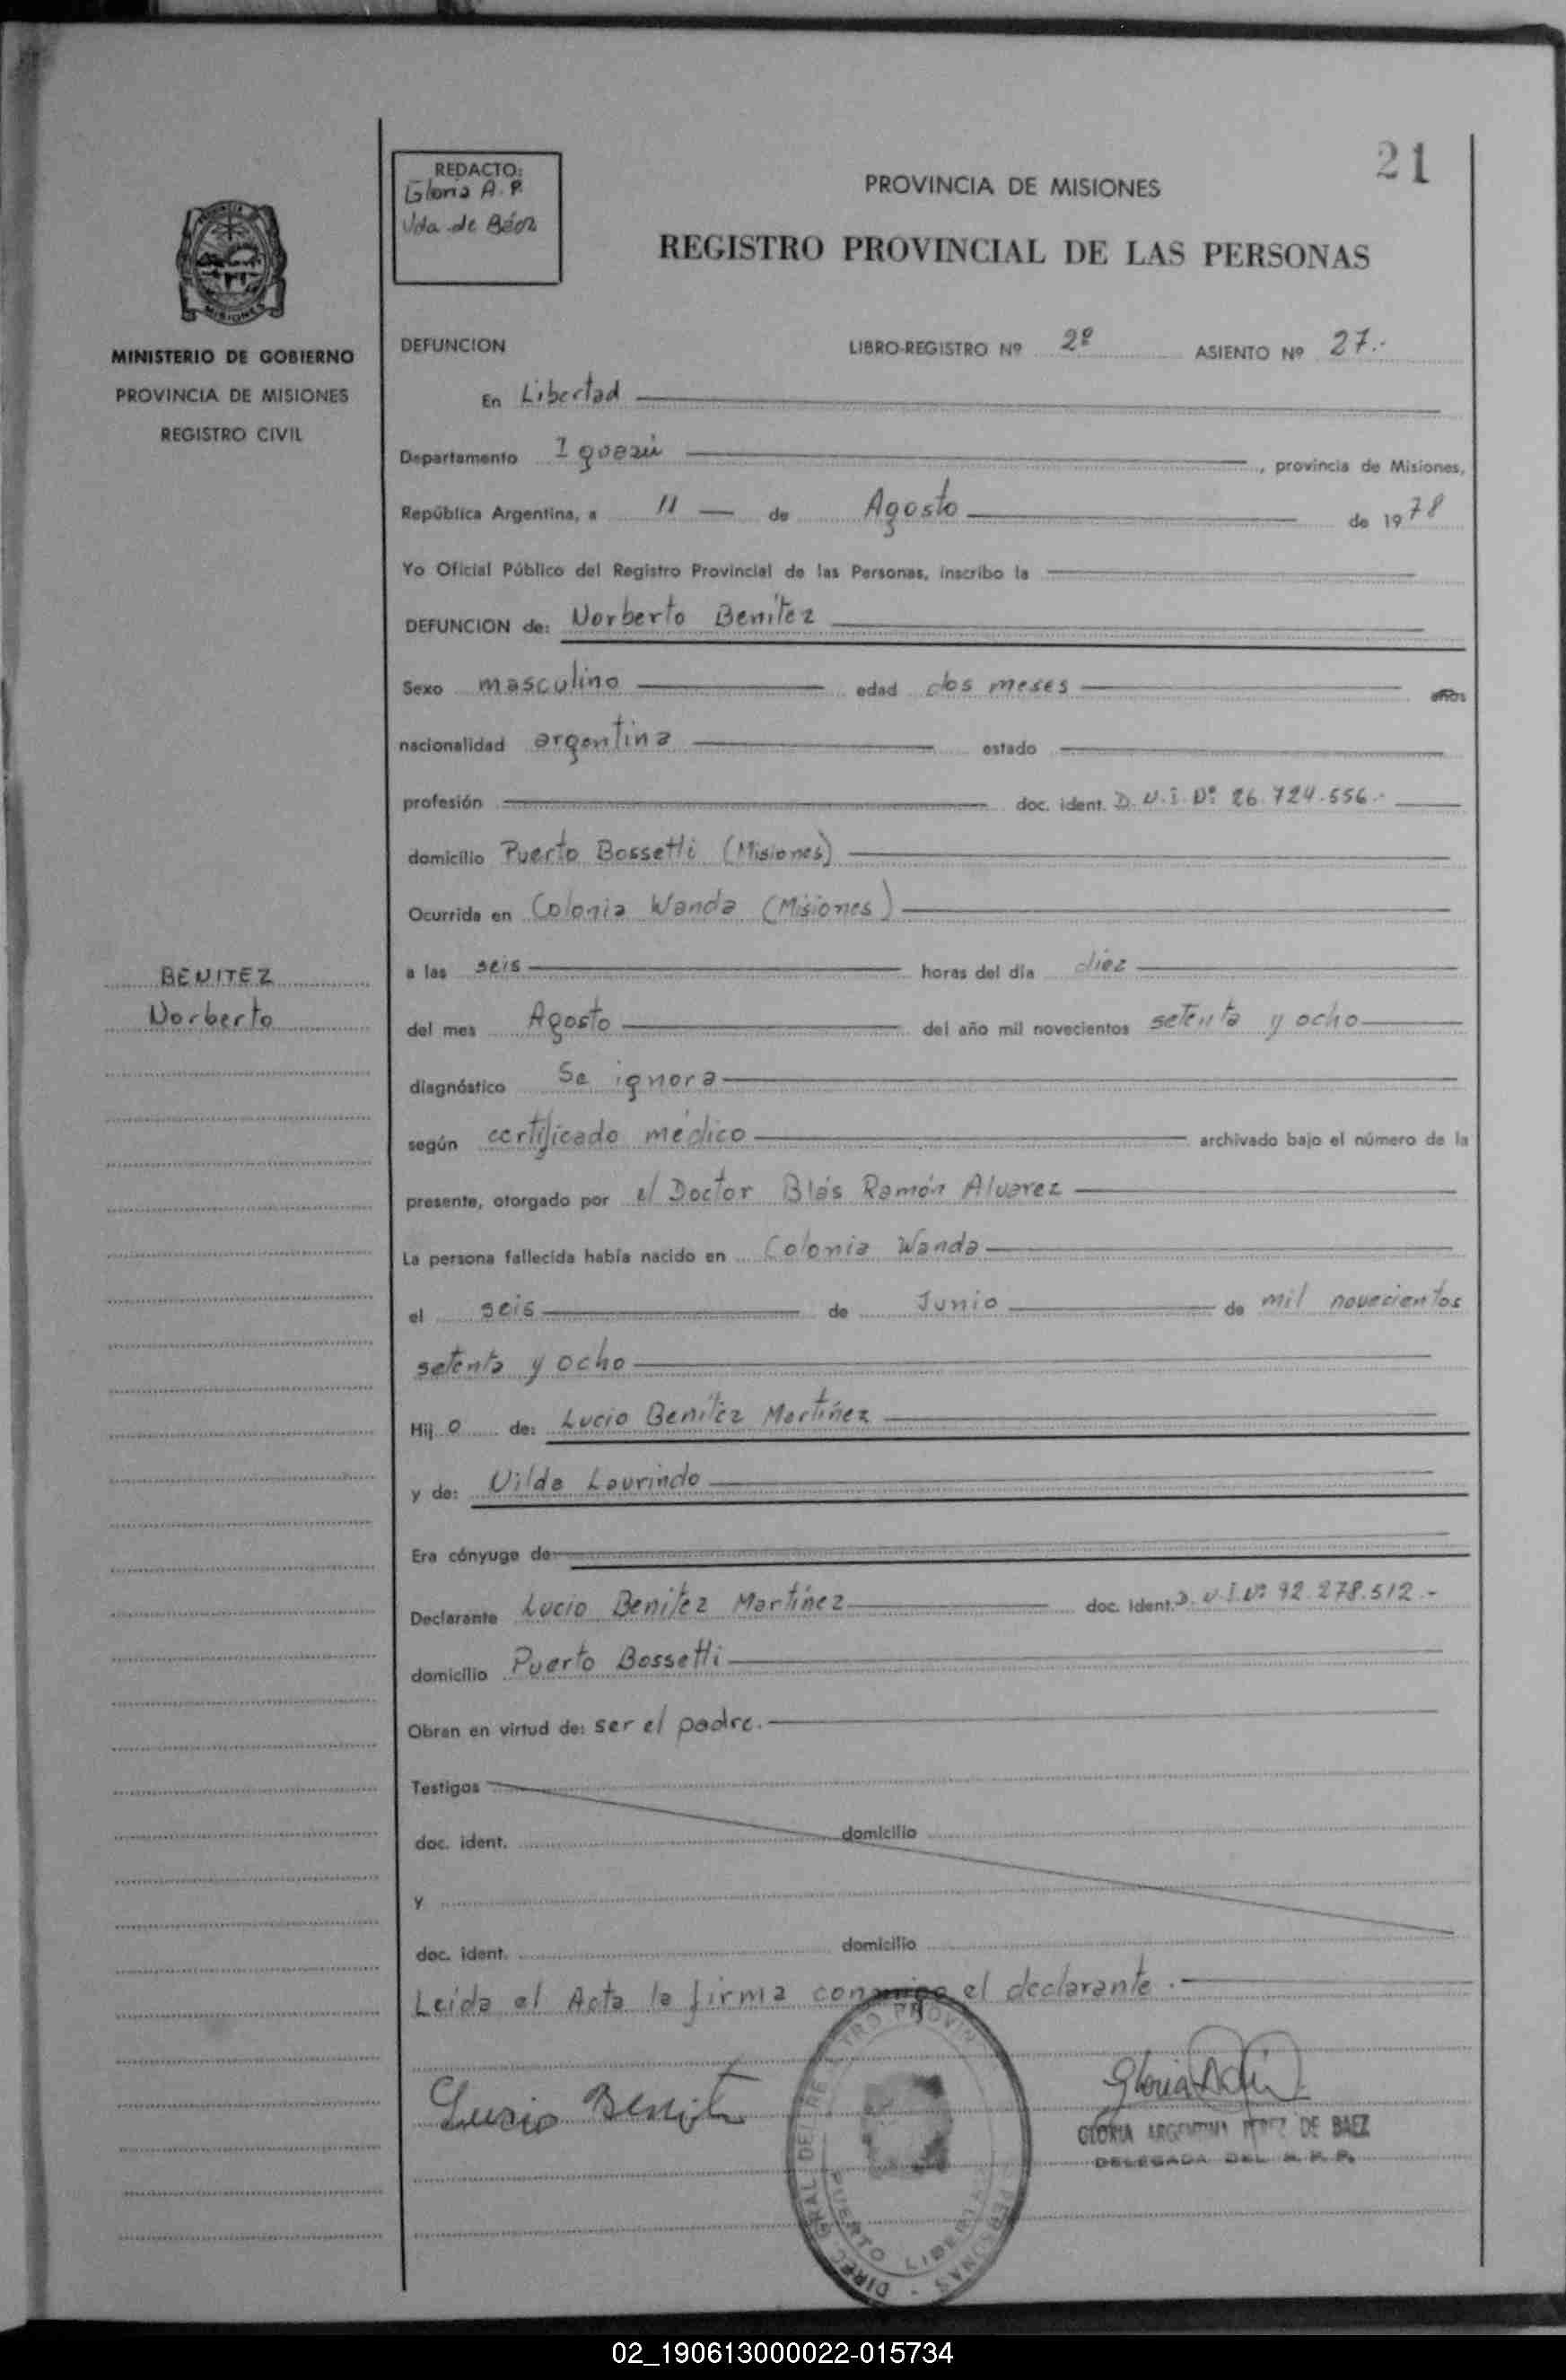 21
REDACTO:
Gloria A. P.
Vda de Báez
PROVINCIA DE MISIONES
REGISTRO PROVINCIAL DE LAS PERSONAS
MISIONES
MINISTERIO DE GOBIERNO
PROVINCIA DE MISIONES
REGISTRO CIVIL
DEFUNCION LIBRO-REGISTRO Nº 2º ASIENTO Nº 27.-
En Libertad
Departamento Iguazú, provincia de Misiones,
República Argentina, a 11 de Agosto de 1978
Yo Oficial Público del Registro Provincial de las Personas, inscribo la
DEFUNCION de: Norberto Benitez
Sexo masculino edad dos meses años
nacionalidad argentina estado
profesión doc. ident. D.N.I. Nº 26.724.556.-
domicilio Puerto Bossetti (Misiones)
Ocurrida en Colonia Wanda (Misiones)
a las seis horas del día diez
BENITEZ
Norberto
del mes Agosto del año mil novecientos setenta y ocho
diagnóstico Se ignora
según certificado médico archivado bajo el número de la
presente, otorgado por el Doctor Blás Ramón Alvarez
La persona fallecida había nacido en Colonia Wanda
el seis de Junio de mil novecientos
setenta y ocho
Hijo de: Lucio Benítez Martínez
y de: Nilda Lourindo
Era cónyuge de
Declarante Lucio Benítez Martínez doc. ident. D.N.I. Nº 92.278.512.-
domicilio Puerto Bossetti
Obran en virtud de: ser el padre.
Testigos
doc. ident. domicilio
y
doc. ident. domicilio
Leida el Acta la firma conmigo el declarante.
Lucio Benit
GLORIA ARGENTINA PEREZ DE BAEZ
DELEGADA DEL R. P. P.
DIREC. GRAL DEL REGISTRO PROVIN PERSONAS
PUERTO LIBERTAD
02_190613000022-015734